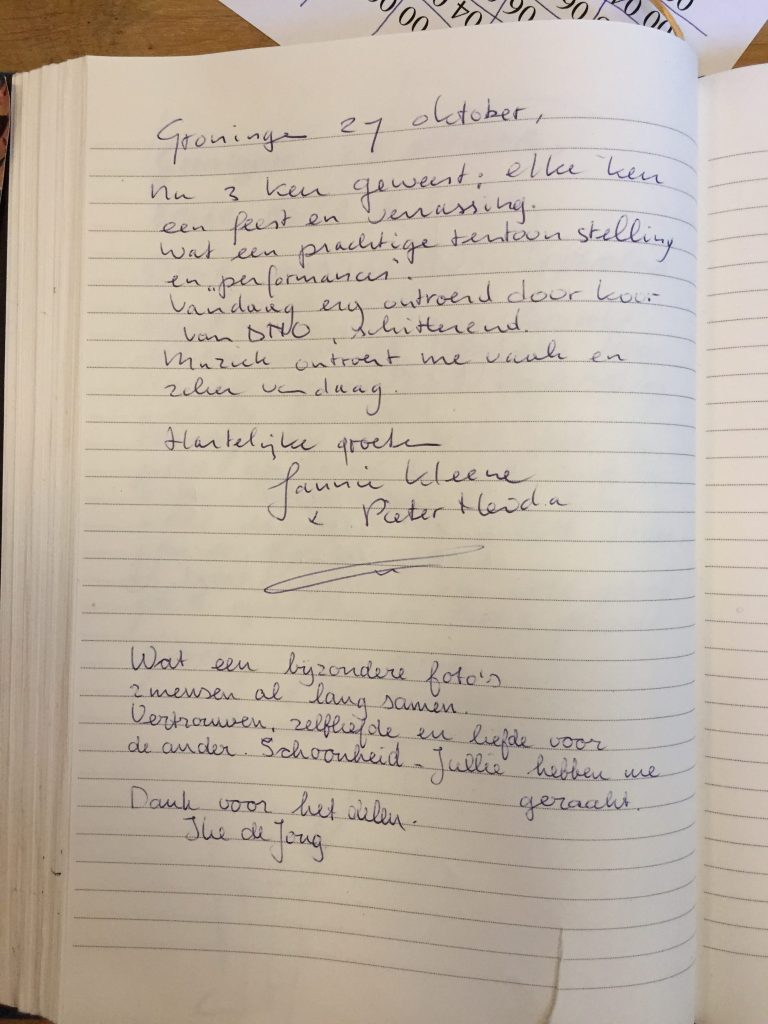 00 06 06 04 00 00
00 04
Groningen 27 oktober,
Nu 3 keer geweest; elke keer
een feest en verrassing.
Wat een prachtige tentoonstelling
en „performances".
Vandaag erg ontroerd door koor
van DNO, schitterend.
Muziek ontroert me vaak en
zeker vandaag.
Hartelijke groeten
Kleene
& Pieter
Wat een bijzondere foto's
2 mensen al lang samen.
Vertrouwen, zelfliefde en liefde voor
de ander. Schoonheid - Jullie hebben me
geraakt.
Dank voor het delen.
de Jong